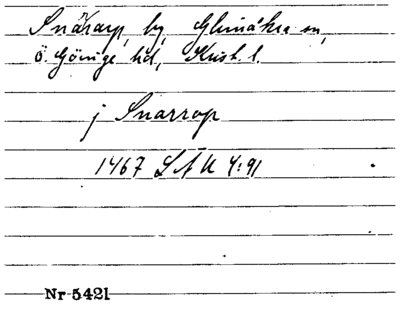 Snärarp, by, Glimåkra sn,
Ö. Göinge hd, Krist. l.
j Snarrop
1467 LAU 4:91
Nr 5421